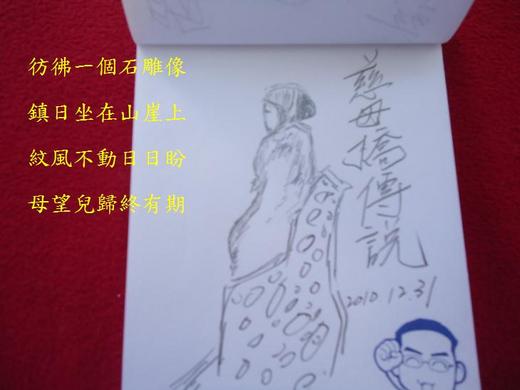 彷彿一個石雕像
鎮日坐在山崖上
紋風不動日日盼
母望兒歸終有期
慈母橋傳説
2010.12.31